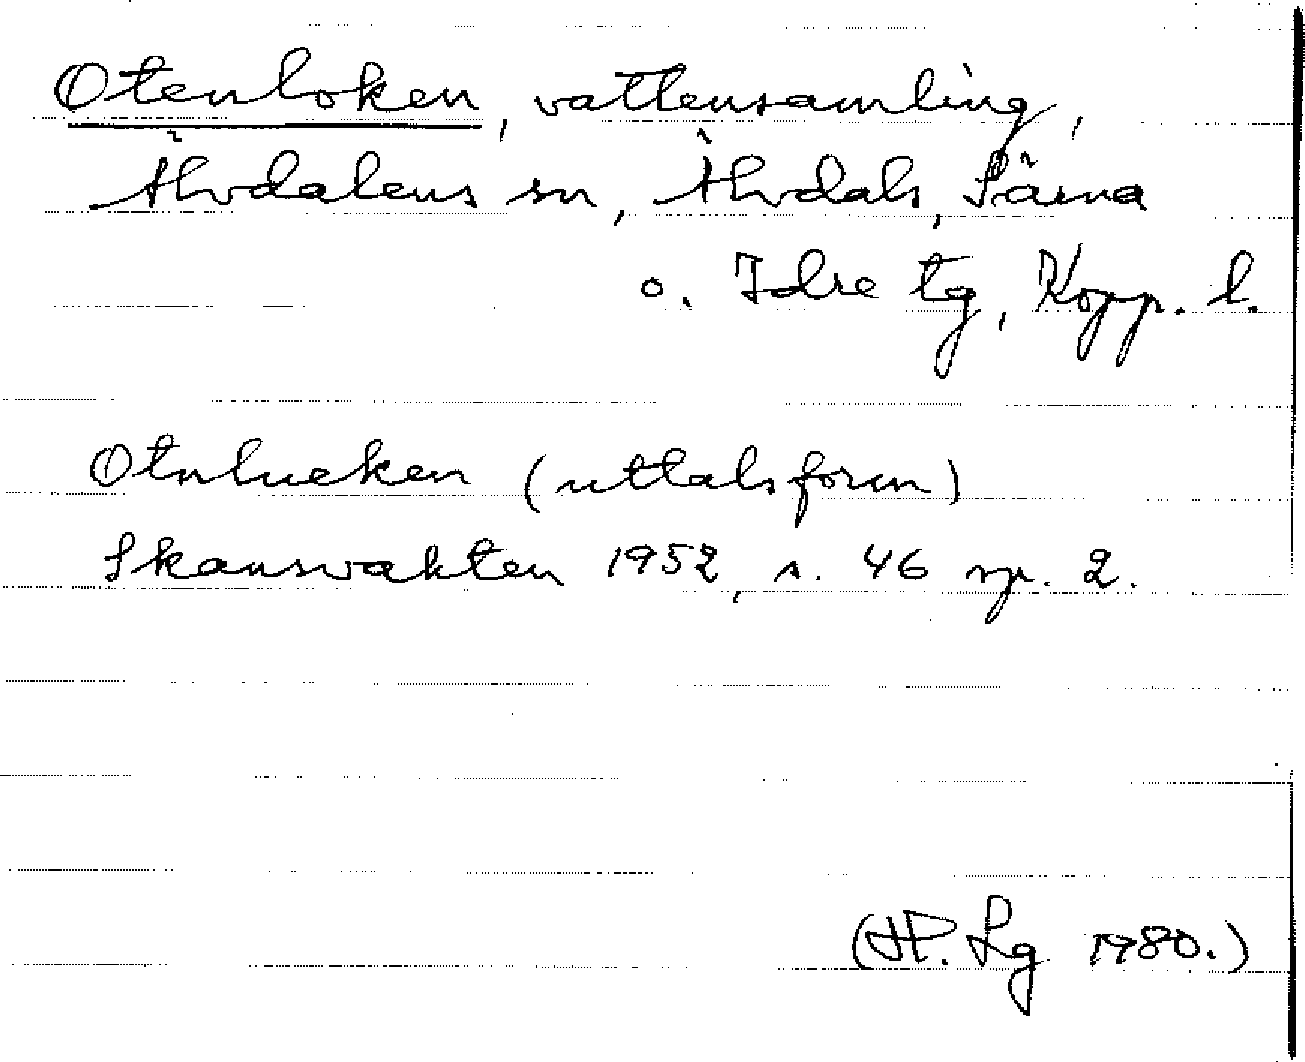 Otenloken, vattensamling,
Älvdalens sn, Älvdals, Särna
o. Idre tg, Kopp. l.
Otnlueken (uttalsform)
Skansvakten 1952, s. 46 sp. 2.
(H.P. Lg 1980.)